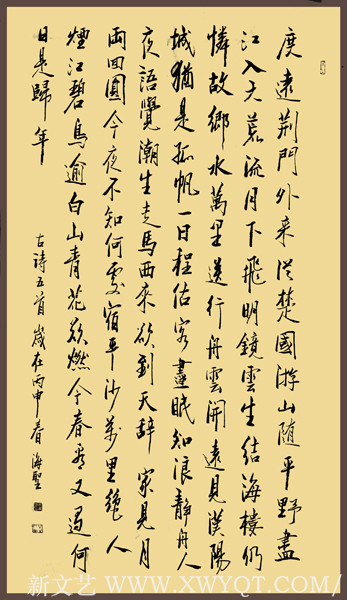 度遠荊門外来從楚國游山隨平野盡
江入大荒流月下飛明鏡雲生結海樓仍
憐故鄉水萬里送行舟雲開遠見漢陽
城猶是孤帆一日程估客晝眠知浪靜舟人
夜語覺潮生走馬西來欲到天辞家見月
兩回圓今夜不知何處宿平沙萬里絕人
煙江碧鳥逾白山青花欲燃今春看又過何
日是歸年
古詩五首歲在丙申春海聖
新文艺 WWW.XWYQT.COM/